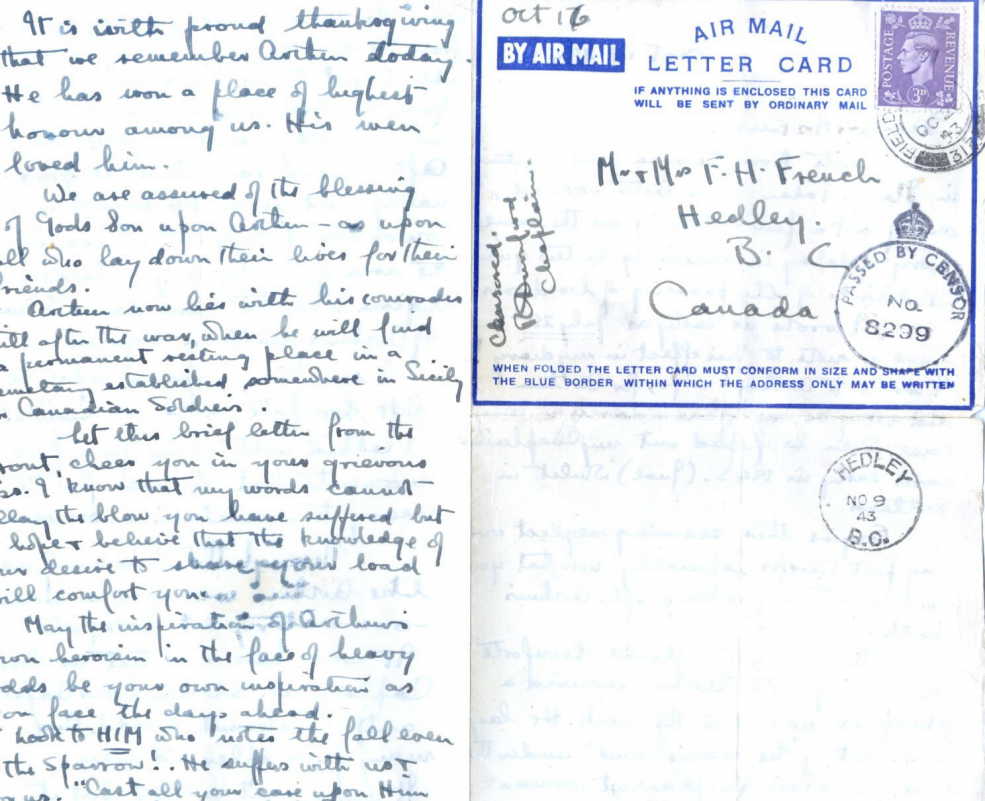 It is with proud thanksgiving
that we remember Arthur today.
He has won a place of highest
honour among us. His men
loved him.
We are assured of the blessing
of Gods Son upon Arthur - as upon
all who lay down their lives for their
friends.
Arthur now lies with his comrades
till after the war, when he will find
a permanent resting place in a
cemetery established somewhere in Sicily
Canadian Soldiers.
Let this brief letter from the
front, cheer you in your grievous
loss. I know that my words cannot
the blow you have suffered but
hope & believe that the knowledge of
our desire to share your load
will comfort you.
May the inspiration of Arthur's
own heroism in the face of heavy
odds be your own inspiration as
you face the days ahead.
look to HIM who "notes the fall even
the Sparrow". He suffers with us &
us. "Cast all your care upon Him
Oct 16
BY AIR MAIL
AIR MAIL
LETTER CARD
IF ANYTHING IS ENCLOSED THIS CARD
WILL BE SENT BY ORDINARY MAIL
POSTAGE
REVENUE
3D
FIELD
OC
43
Mr & Mrs F. H. French
Hedley.
B. C
Canada
Censored.
Chaplain.
PASSED BY CENSOR
NO.
8299
WHEN FOLDED THE LETTER CARD MUST CONFORM IN SIZE AND SHAPE WITH
THE BLUE BORDER WITHIN WHICH THE ADDRESS ONLY MAY BE WRITTEN
HEDLEY
NO 9
43
B.C.